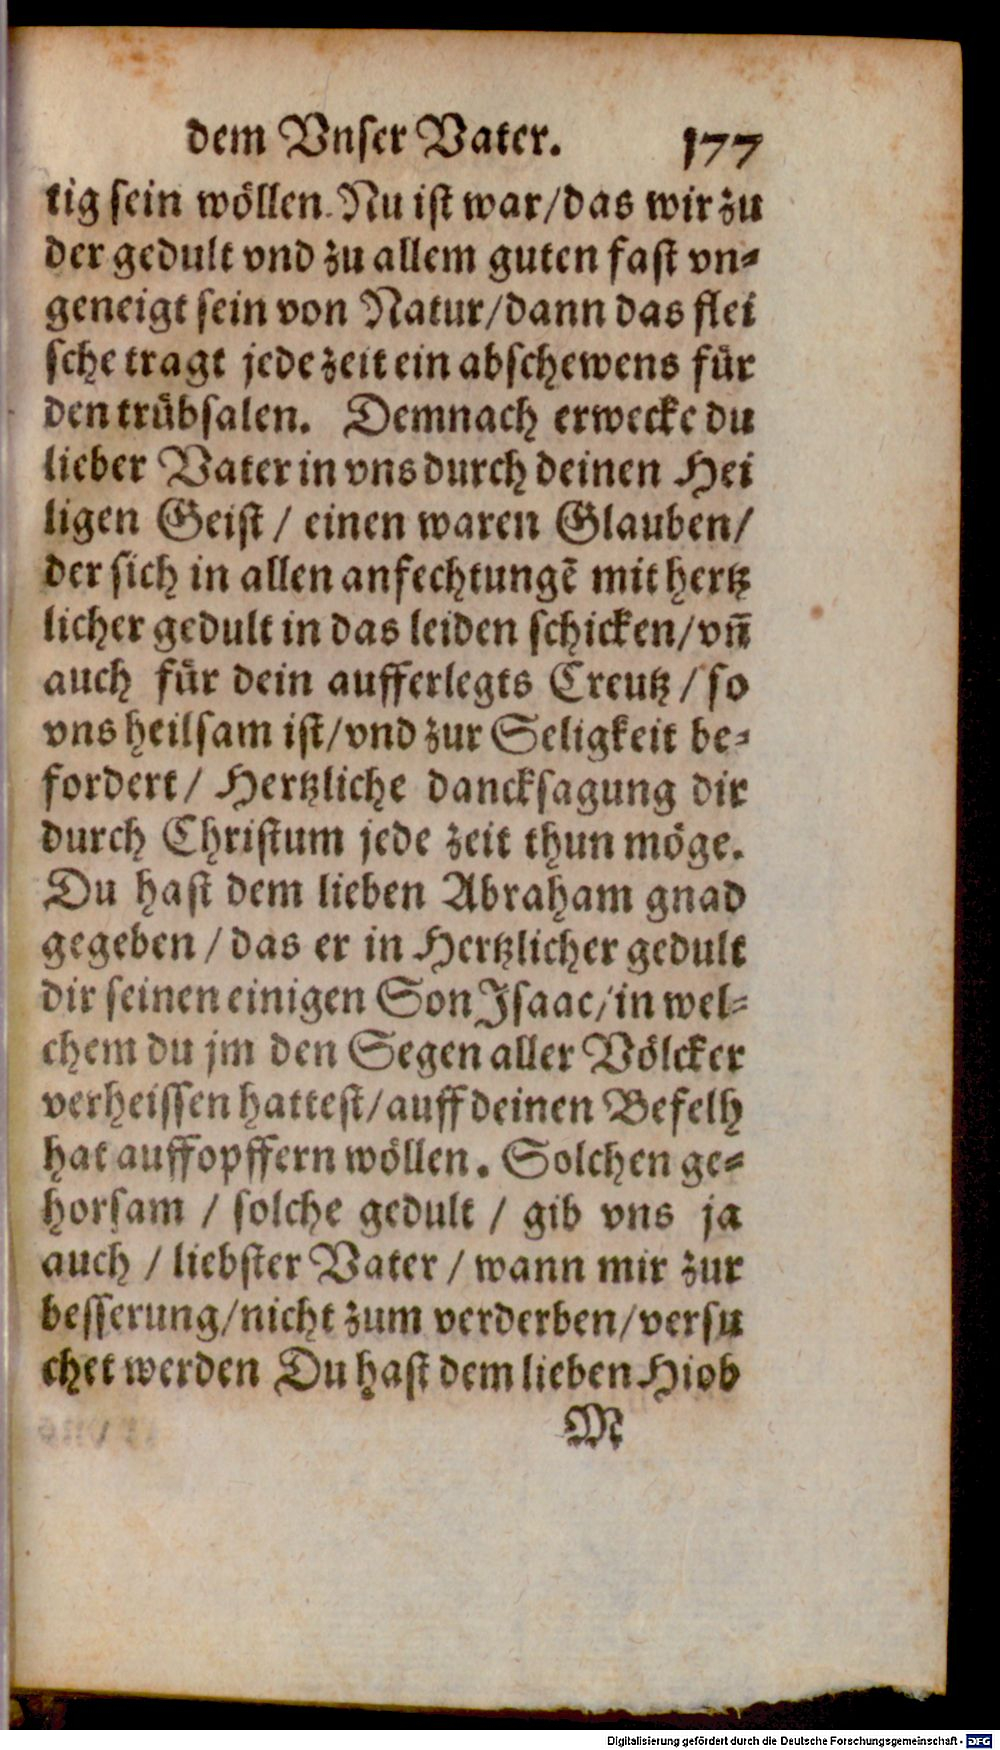 dem Vnser Vater. 177
tig sein wöllen. Nu ist war/das wir zu
der gedult vnd zu allem guten fast vn-
geneigt sein von Natur/dann das flei
sche tragt jede zeit ein abschewens für
den trübsalen. Demnach erwecke du
lieber Vater in vns durch deinen Hei
ligen Geist / einen waren Glauben/
der sich in allen anfechtungē mit hertz
licher gedult in das leiden schicken/vñ
auch für dein aufferlegts Creutz / so
vns heilsam ist/vnd zur Seligkeit be-
fordert / Hertzliche dancksagung dir
durch Christum jede zeit thun möge.
Du hast dem lieben Abraham gnad
gegeben / das er in Hertzlicher gedult
dir seinen einigen Son Isaac/in wel-
chem du jm den Segen aller Völcker
verheissen hattest/auff deinen Befelh
hat auffopffern wöllen. Solchen ge-
horsam / solche gedult / gib vns ja
auch / liebster Vater / wann mir zur
besserung/nicht zum verderben/versu
chet werden Du hast dem lieben Hiob
M
Digitalisierung gefördert durch die Deutsche Forschungsgemeinschaft - DFG